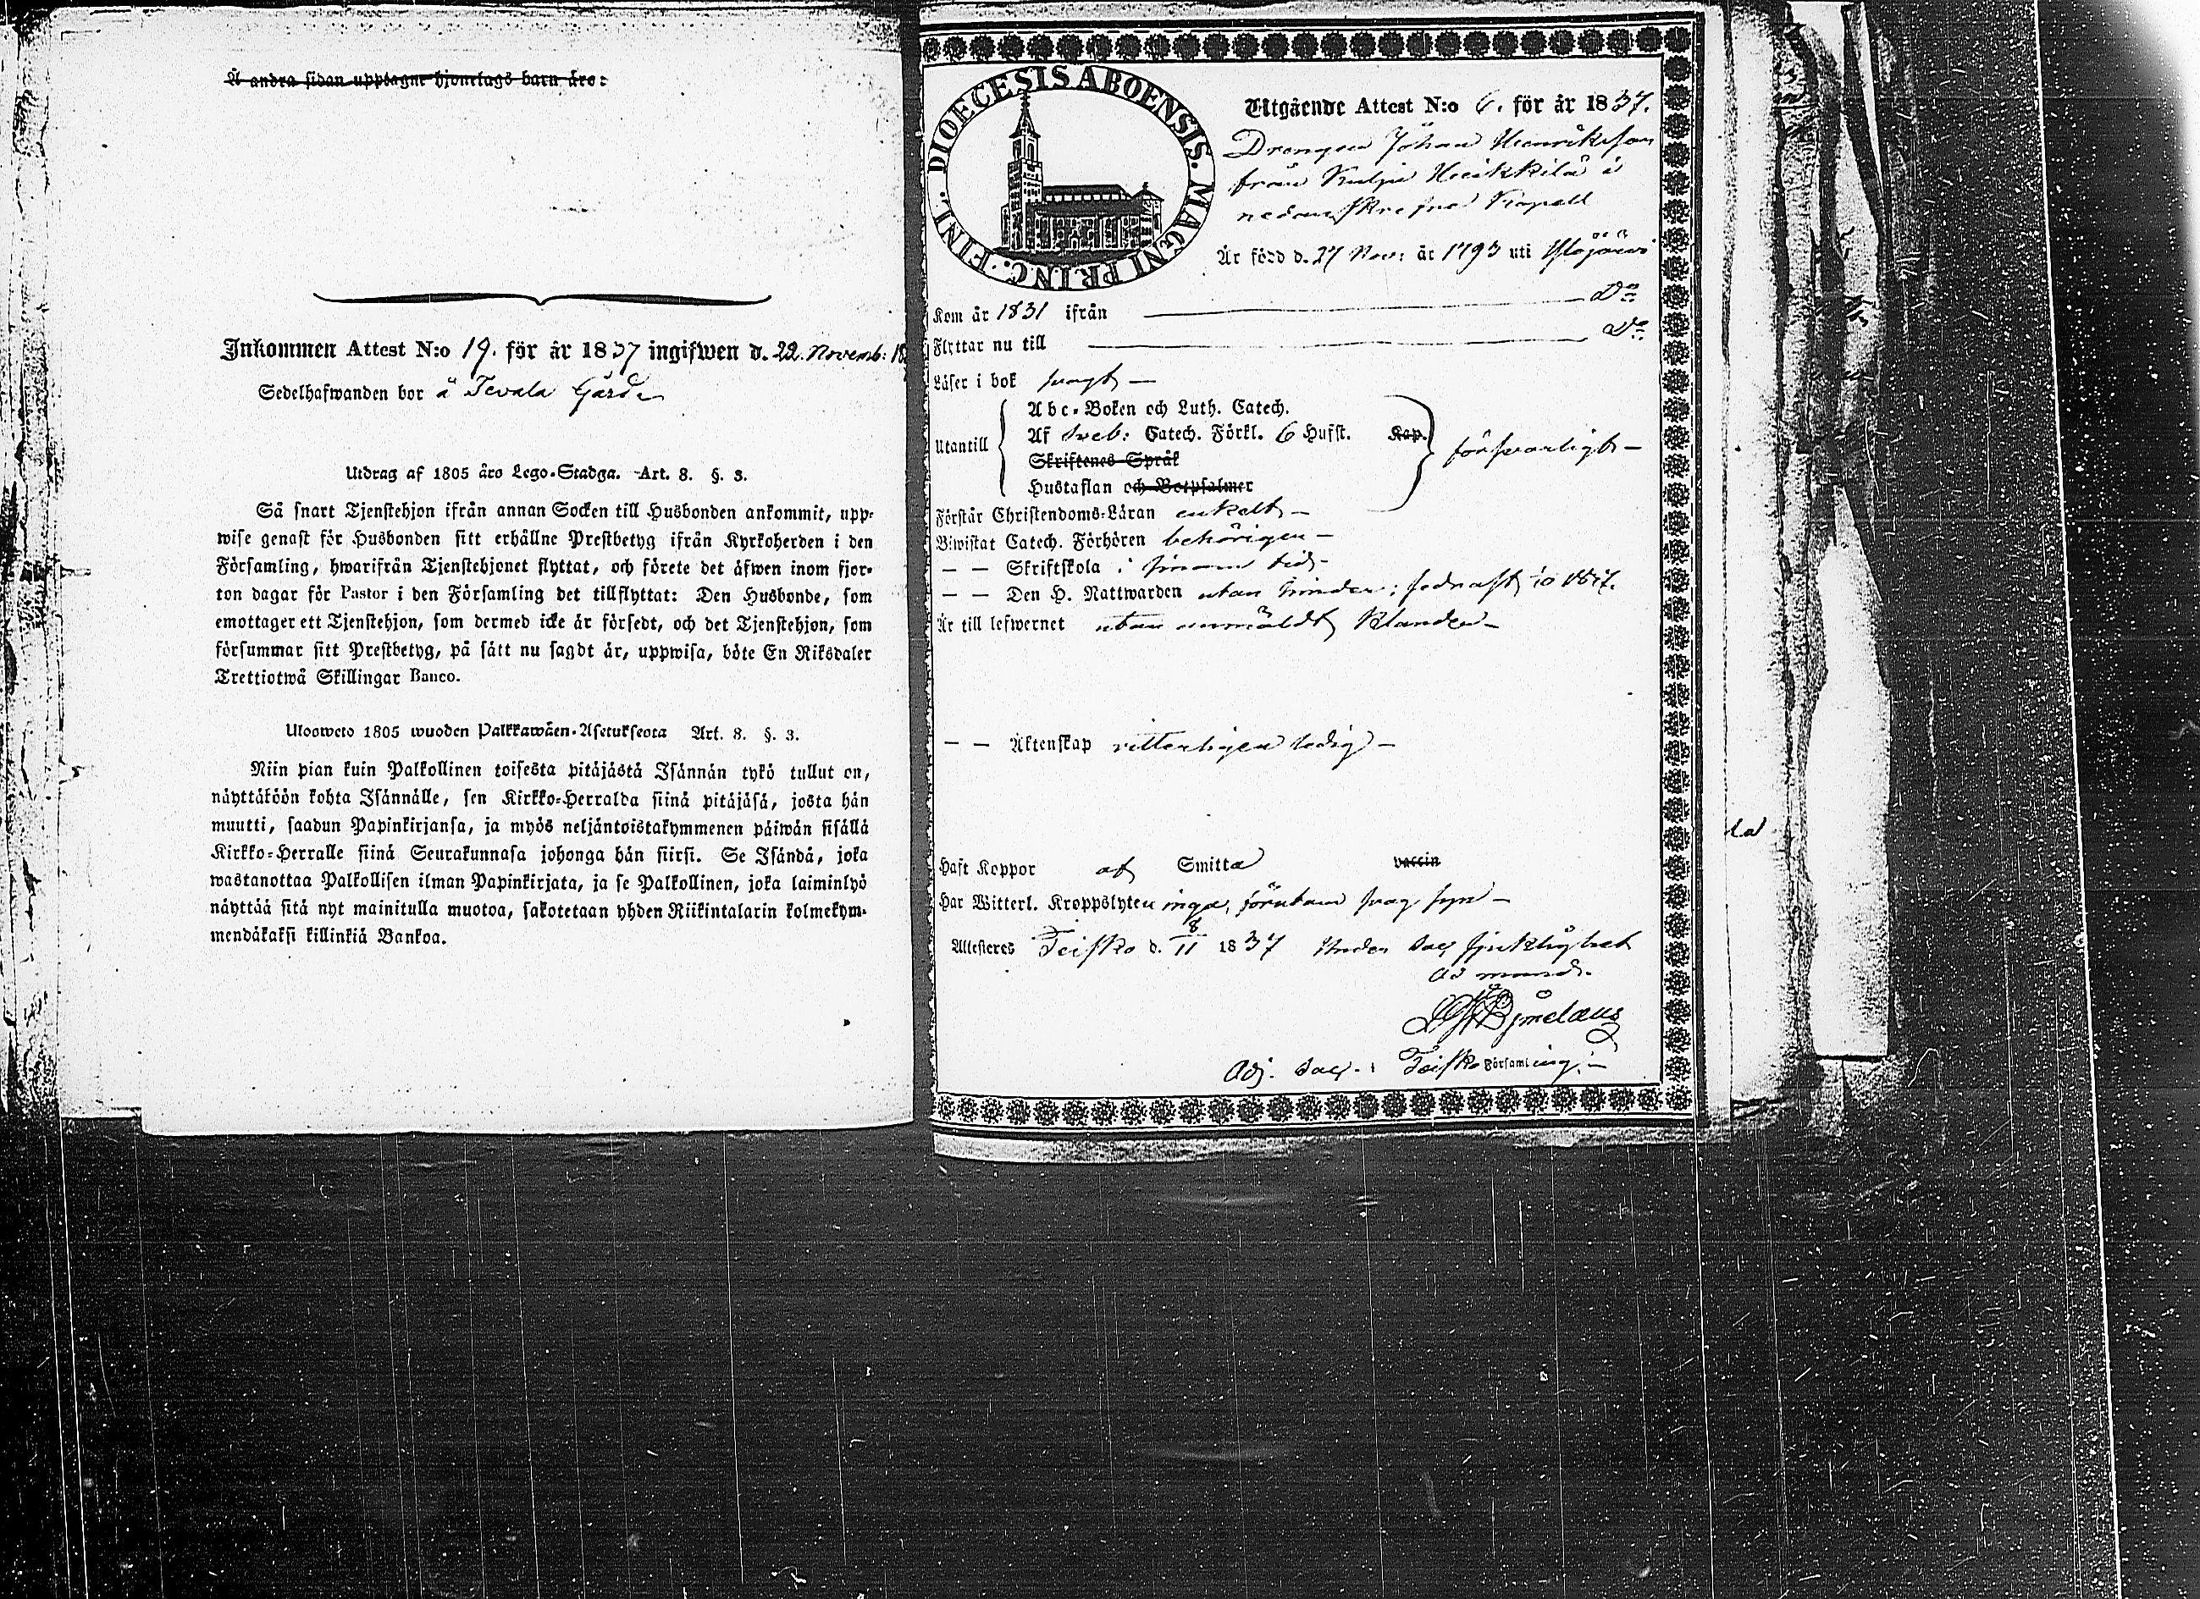 Å andra sidan upptagne hjonelags barn äro:
Inkommen Attest N:o 19. för år 1837 ingifwen d. 22. Novemb:
Sedelhafwanden bor å Tevala Gård
Utdrag af 1805 års Lego-Stadga. Art. 8. §. 3.
Så snart Tjenstehjon ifrån annan Socken till Husbonden ankommit, upp-
wise genast för Husbonden sitt erhållne Prestbetyg ifrån Kyrkoherden i den
Församling, hwarifrån Tjenstehjonet flyttat, och förete det äfwen inom fjor-
ton dagar för Pastor i den Församling det tillflyttat: Den Husbonde, som
emottager ett Tjenstehjon, som dermed icke är försedt, och det Tjenstehjon, som
försummar sitt Prestbetyg, på sätt nu sagdt är, uppwisa, böte En Riksdaler
Trettiotwå Skillingar Banco.
Ulosweto 1805 wuoden Palkkawäen-Asetuksesta Art. 8. §. 3.
Niin pian kuin Palkollinen toisesta pitäjästä Isännän tykö tullut on,
näyttäköön kohta Isännälle, sen Kirkko-Herralda siinä pitäjäsä, josta hän
muutti, saadun Papinkirjansa, ja myös neljäntoistakymmenen päiwän sisällä
Kirkko-Herralle siinä Seurakunnasa johonga hän siirsi. Se Isändä, joka
wastanottaa Palkollisen ilman Papinkirjata, ja se Palkollinen, joka laiminlyö
näyttää sitä nyt mainitulla muotoa, sakotetaan yhden Riikintalarin kolmekym-
mendäkaksi killinkiä Bankoa.
DIOECESIS ABOENSIS. MAGNI PRINC. FINL.
Utgående Attest N:o 6. för år 1837.
Drengen Johan Henriksson
från Kulju Heikkilä i
nedanskrefne Kapell
Är född d. 27 Nov: år 1793 uti Ylöjärvi
Kom år 1831 ifrån D:o
Flyttar nu till D:o
Läser i bok svagt
Abc-Boken och Luth. Catech.
Utantill Af Sveb: Catech. Förkl. 6 Hufst. Kap. försvarligt
Skriftenes Språk
Hustaflan och Botpsalmer
Förstår Christendoms-Läran enkelt
Biwistat Catech. Förhören behörigen
— — Skriftskola i sinom tid
— — Den H. Nattwarden utan hinder; sednast
Är till lefwernet utan anmäldt klander
— — Äktenskap vitterligen ledig
Haft Koppor af Smitta vaccin
Har Witterl. Kroppslyten inga, förutom svag syn
Attesteras Teisko d. 8/11 1837 Under Sac: sjuklighet
ad mand:
Adj. Sac. i Teisko Församling